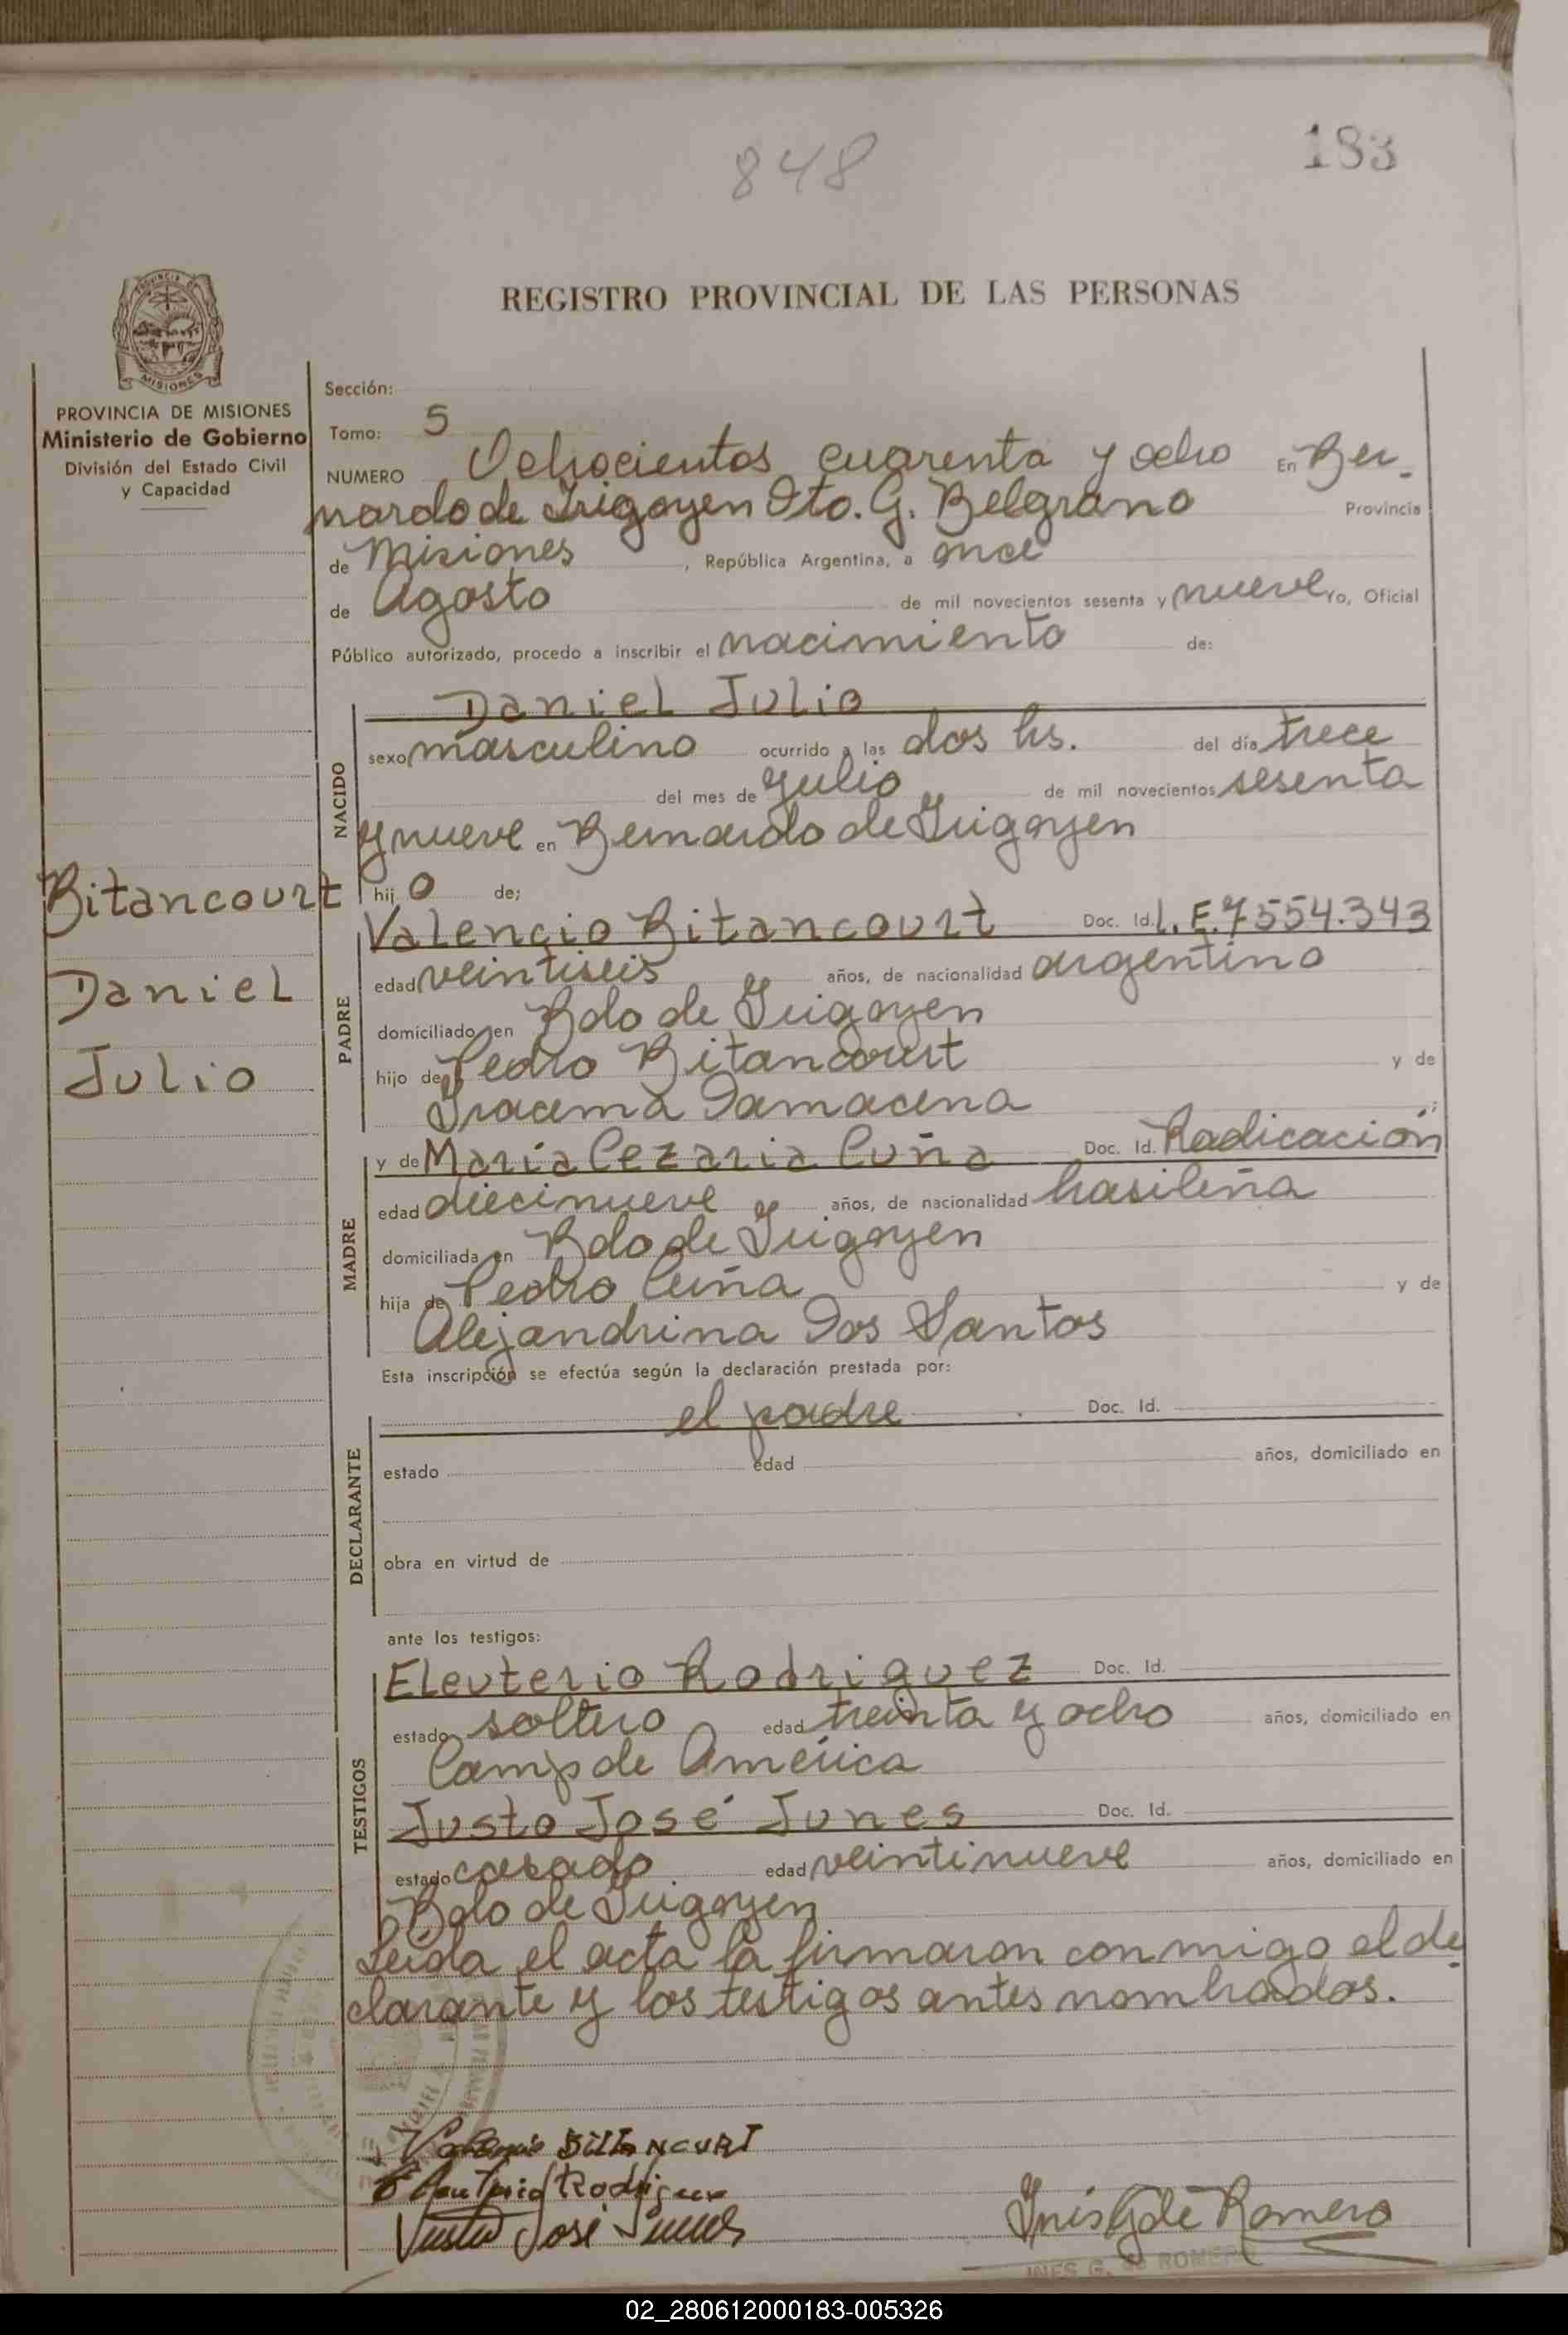 848
183
REGISTRO PROVINCIAL DE LAS PERSONAS
PROVINCIA DE MISIONES
Ministerio de Gobierno
División del Estado Civil
y Capacidad
Sección:
Tomo: 5
NUMERO Ochocientos cuarenta y ocho En Ber-
nardo de Irigoyen Dto. G. Belgrano Provincia
de Misiones, República Argentina, a once
de Agosto de mil novecientos sesenta y nueve Yo, Oficial
Público autorizado, procedo a inscribir el nacimiento de:
NACIDO
Daniel Julio
sexo masculino ocurrido a las dos hs. del día trece
del mes de Julio de mil novecientos sesenta
y nueve en Bernardo de Irigoyen
hijo de;
Bitancourt
Daniel
Julio
PADRE
Valencio Bitancourt Doc. Id. L.E. 7554.343
edad veintiseis años, de nacionalidad argentino
domiciliado en Bdo de Irigoyen
hijo de Pedro Bitancourt y de
Iracema Damacena ;
MADRE
y de María Cezaria Cuña Doc. Id. Radicación
edad diecinueve años, de nacionalidad brasileña
domiciliada en Bdo de Irigoyen
hija de Pedro Cuña y de
Alejandrina Dos Santos
Esta inscripción se efectúa según la declaración prestada por:
DECLARANTE
el padre Doc. Id.
estado edad años, domiciliado en
obra en virtud de
ante los testigos:
TESTIGOS
Eleuterio Rodriguez Doc. Id.
estado soltero edad treinta y ocho años, domiciliado en
Camp de América
Justo José Junes Doc. Id.
estado casado edad veintinueve años, domiciliado en
Bdo de Irigoyen
Leída el acta la firmaron conmigo el de-
clarante y los testigos antes nombrados.
Rodriguez
José
Inés G de Romero
INES G. de ROMERO
02_280612000183-005326